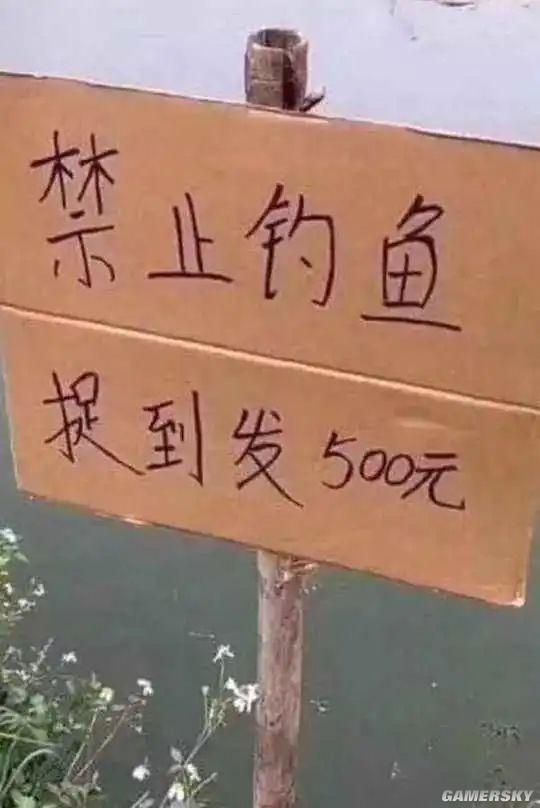 禁止钓鱼
捉到发500元
GAMERSKY